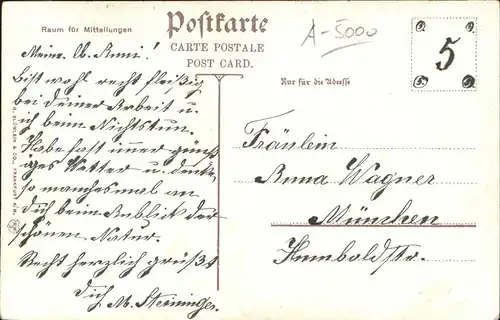 Raum für Mitteilungen
Postkarte
CARTE POSTALE
POST CARD.
A-5000
5
Nur für die Adresse
Meine lb. Anni!
Bist wohl recht fleißig
bei deiner Arbeit u.
ich beim Nichtstun.
Habe fast immer günst
iges Wetter u. denke
so manchesmal an
Dich beim Anblick der
schönen Natur.
Recht herzlich grüßt
Dich M. Steininger.
Fräulein
Anna Wagner
München
Humboldtstr.